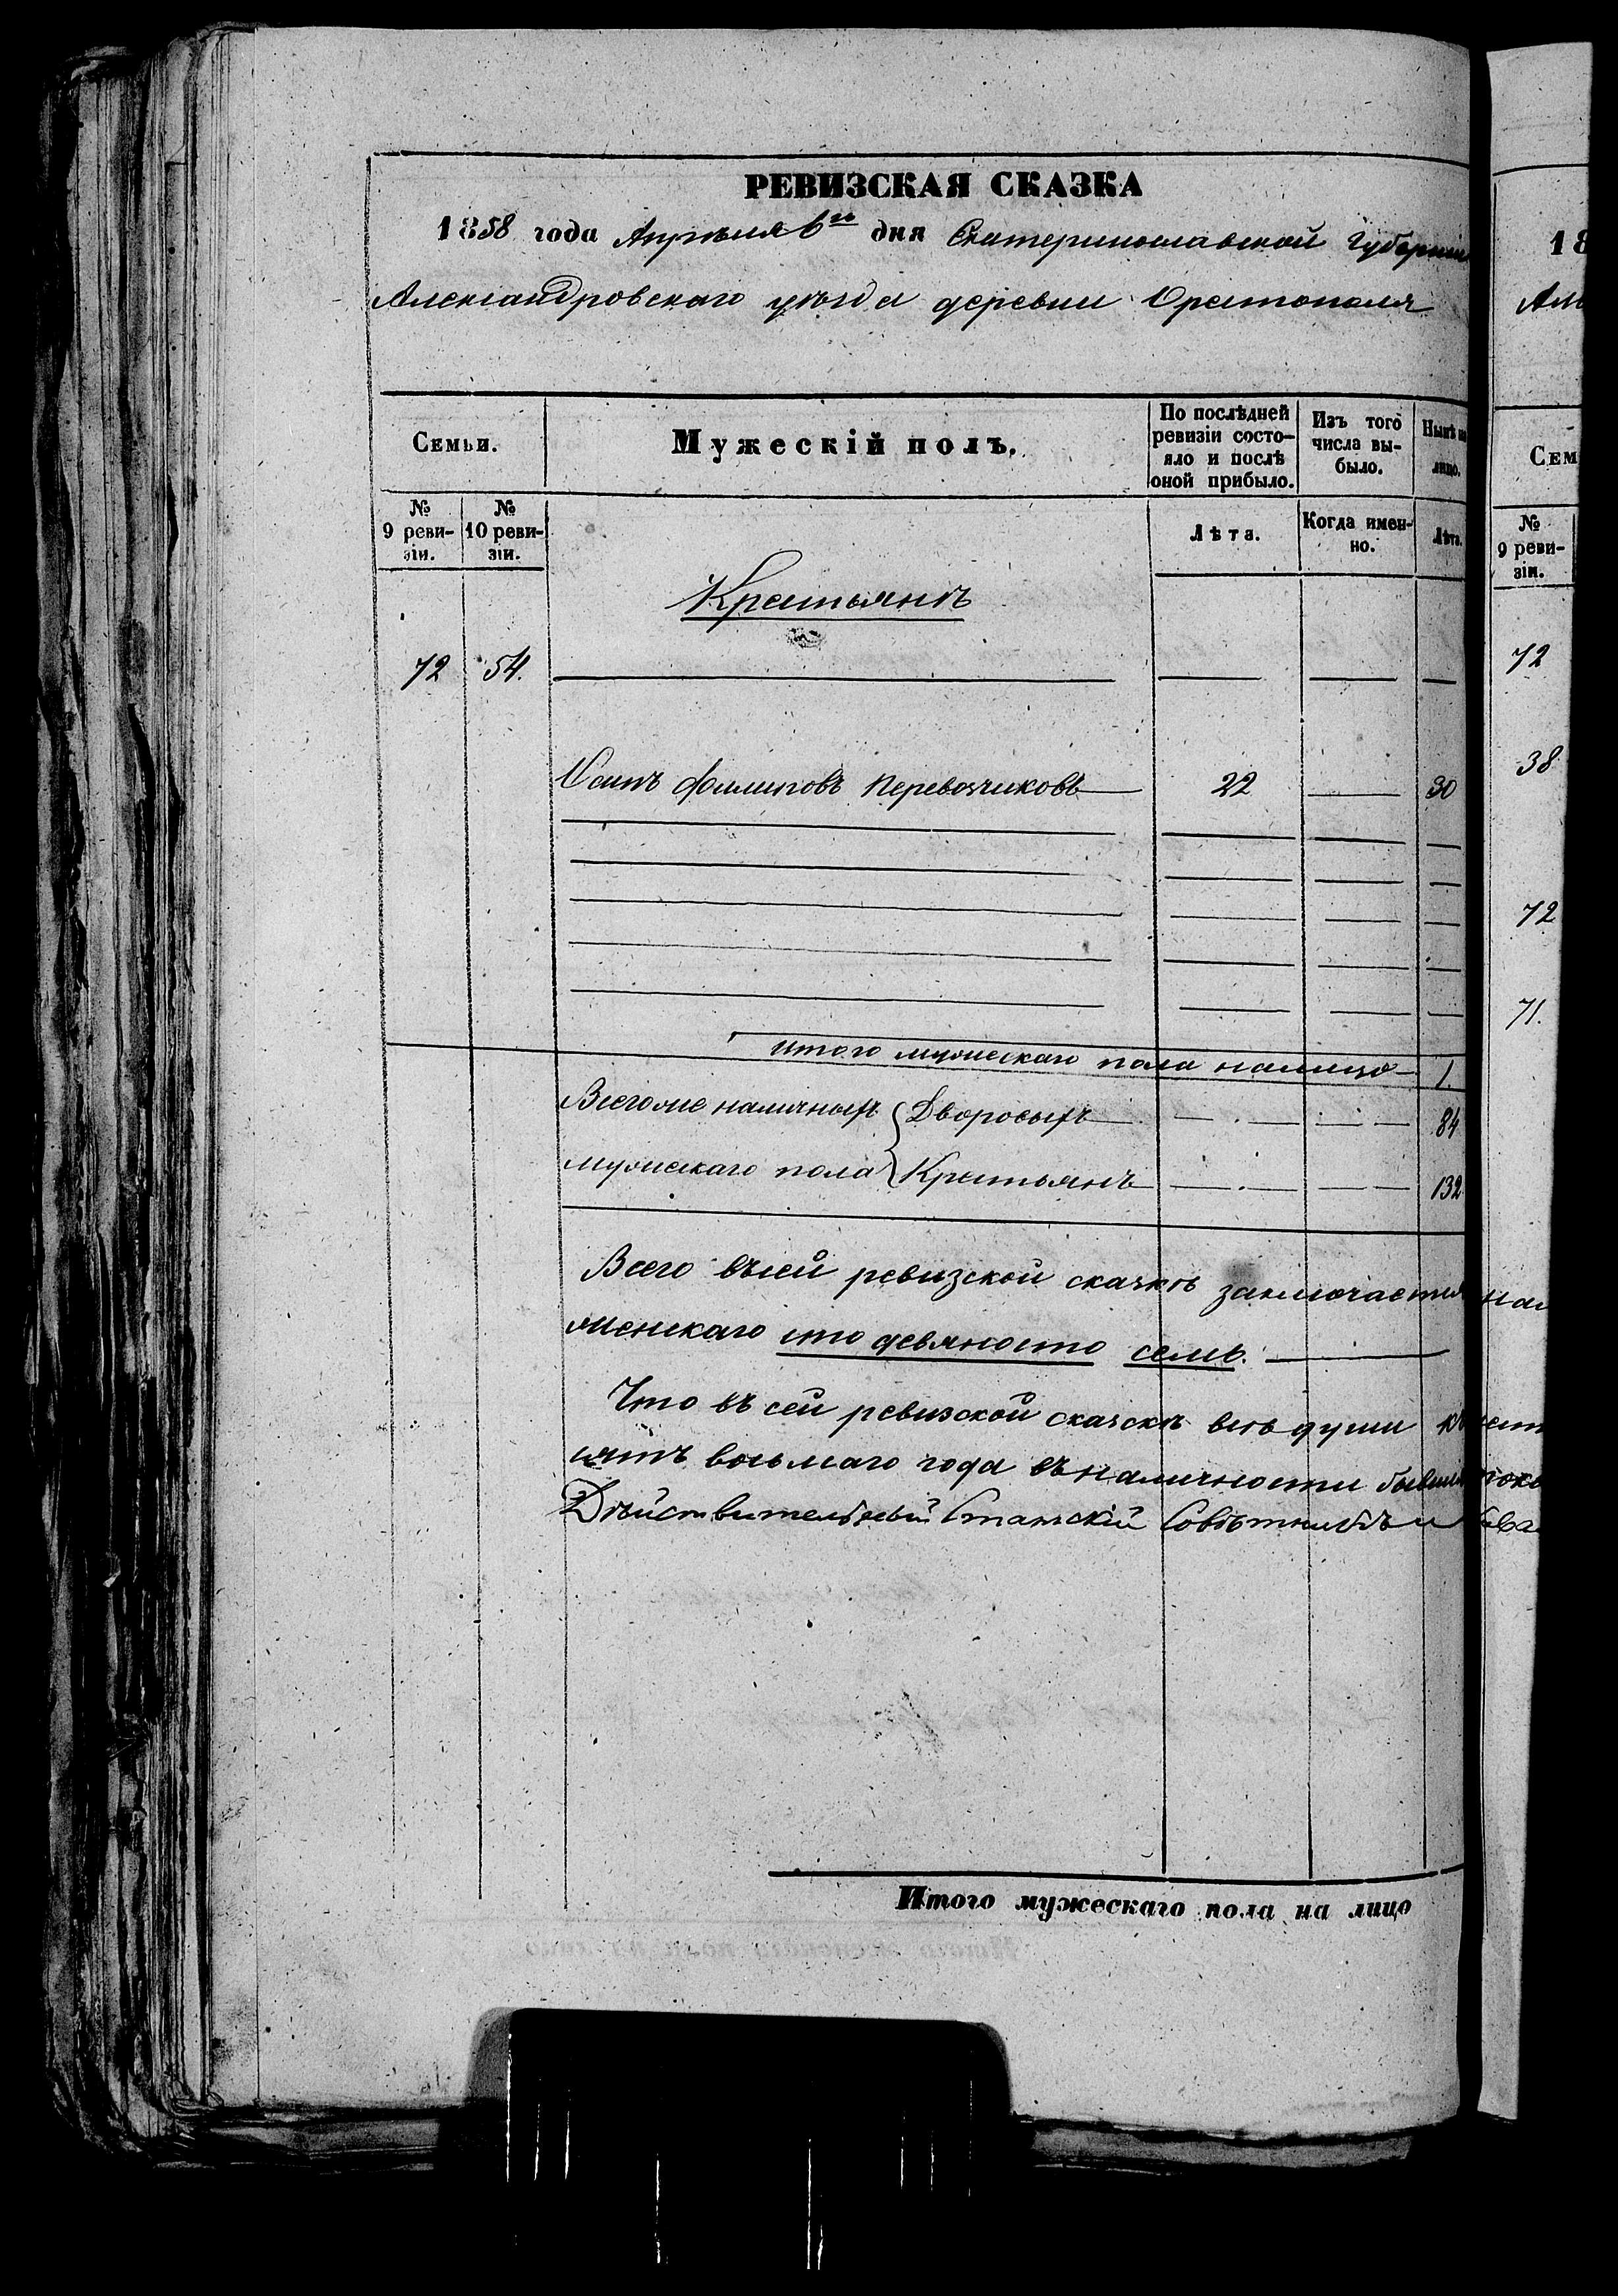 РЕВИЗСКАЯ СКАЗКА
1858 года Апрѣля 6го дня Екатеринославской Губерніи
Александровскаго уѣзда деревни Орестополя
Семьи.
Мужескій полъ.
По послѣдней ревизіи состояло и послѣ оной прибыло.
Изъ того числа выбыло.
Нынѣ на лицо.
№ 9 ревизіи.
№ 10 ревизіи.
Лѣта.
Когда именно.
Лѣта.
Крестьянъ
72 54.
Осипъ Филиповъ Перевозчиковъ 22 30
Итого мужескаго пола налицо 1.
Всегоже наличныхъ Дворовыхъ 84
мужескаго пола Крестьянъ 132
Всего въсей ревизской сказкѣ заключается
женскаго сто девяносто семь.
Что въ сей ревизской сказкѣ всѣ души
сятъ восьмаго года въ наличности бывшія
Дѣйствительный Статскій Совѣтникъ и
Итого мужескаго пола на лицо
18
Ал
Сем
№ 9 ревизіи.
72
38
72
71.